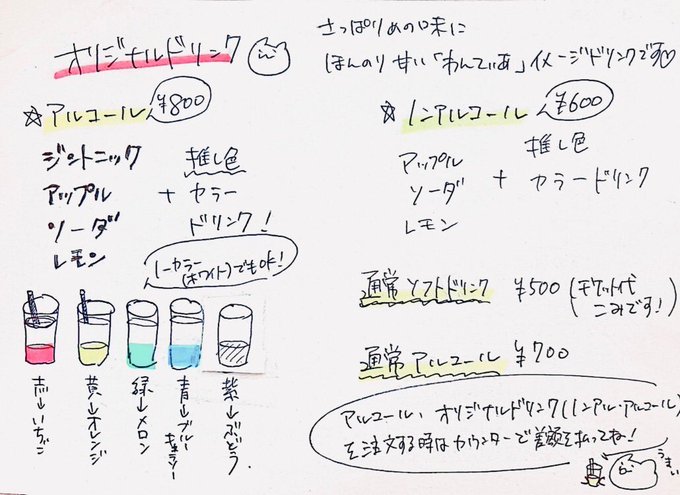 オリジナルドリンク
さっぱりめの味に
ほんのり甘い「わんてぃあ」イメージドリンクです♡
☆アルコール ¥800
ジントニック
アップル
ソーダ
レモン
+
推し色
カラー
ドリンク!
(ーカラー(ホワイト)でもok!
赤→いちご
黄→オレンジ
緑→メロン
青→ブルーキュラソー
紫→ぶどう
☆ノンアルコール ¥600
アップル
ソーダ
レモン
+
推し色
カラードリンク
通常ソフトドリンク ¥500(チケット代こみです!)
通常アルコール ¥700
アルコール、オリジナルドリンク(ノンアル・アルコール)
を注文する時はカウンターで差額を払ってね!
うまい